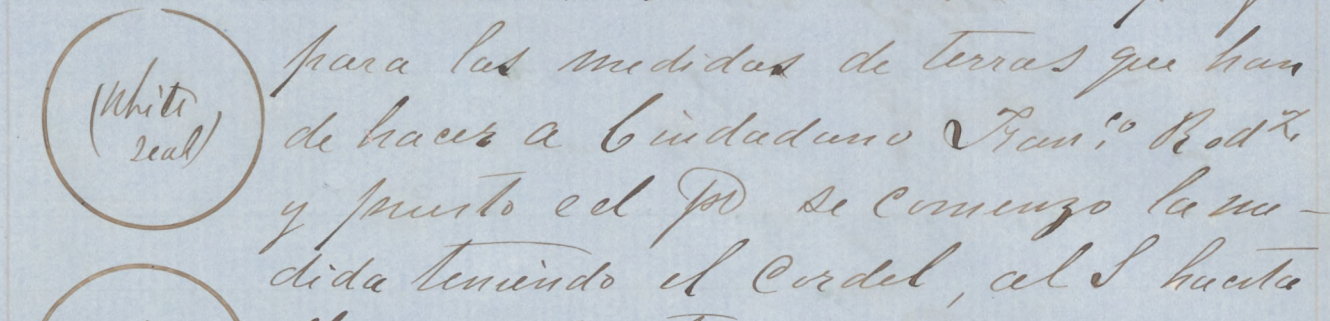 (White
Seal)
para las medidas de terras que han
de hacer a Ciudadano Fran.co Rodz.
y puesto eel po se comenzo la me-
dida teniendo el Cordel, al S hasta